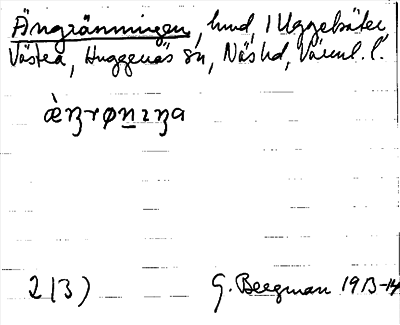 Ängränningen, hmd, 1 Uggelsäter
Västra, Huggenäs sn, Näs hd, Värml. l.
2(3)
G. Bergman 1913-14